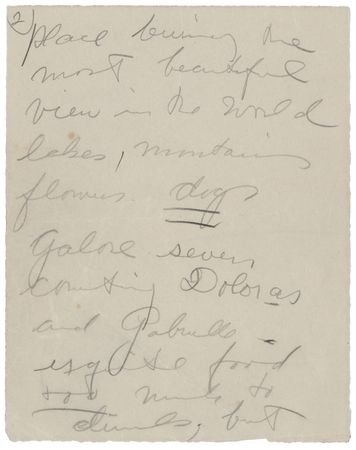 2)
place being the
most beautiful
view in the World
lakes, mountains
flowers. dogs
Galore seven,
counting Doloras
and Gabrielle -
esquite food
too much to
drink, but